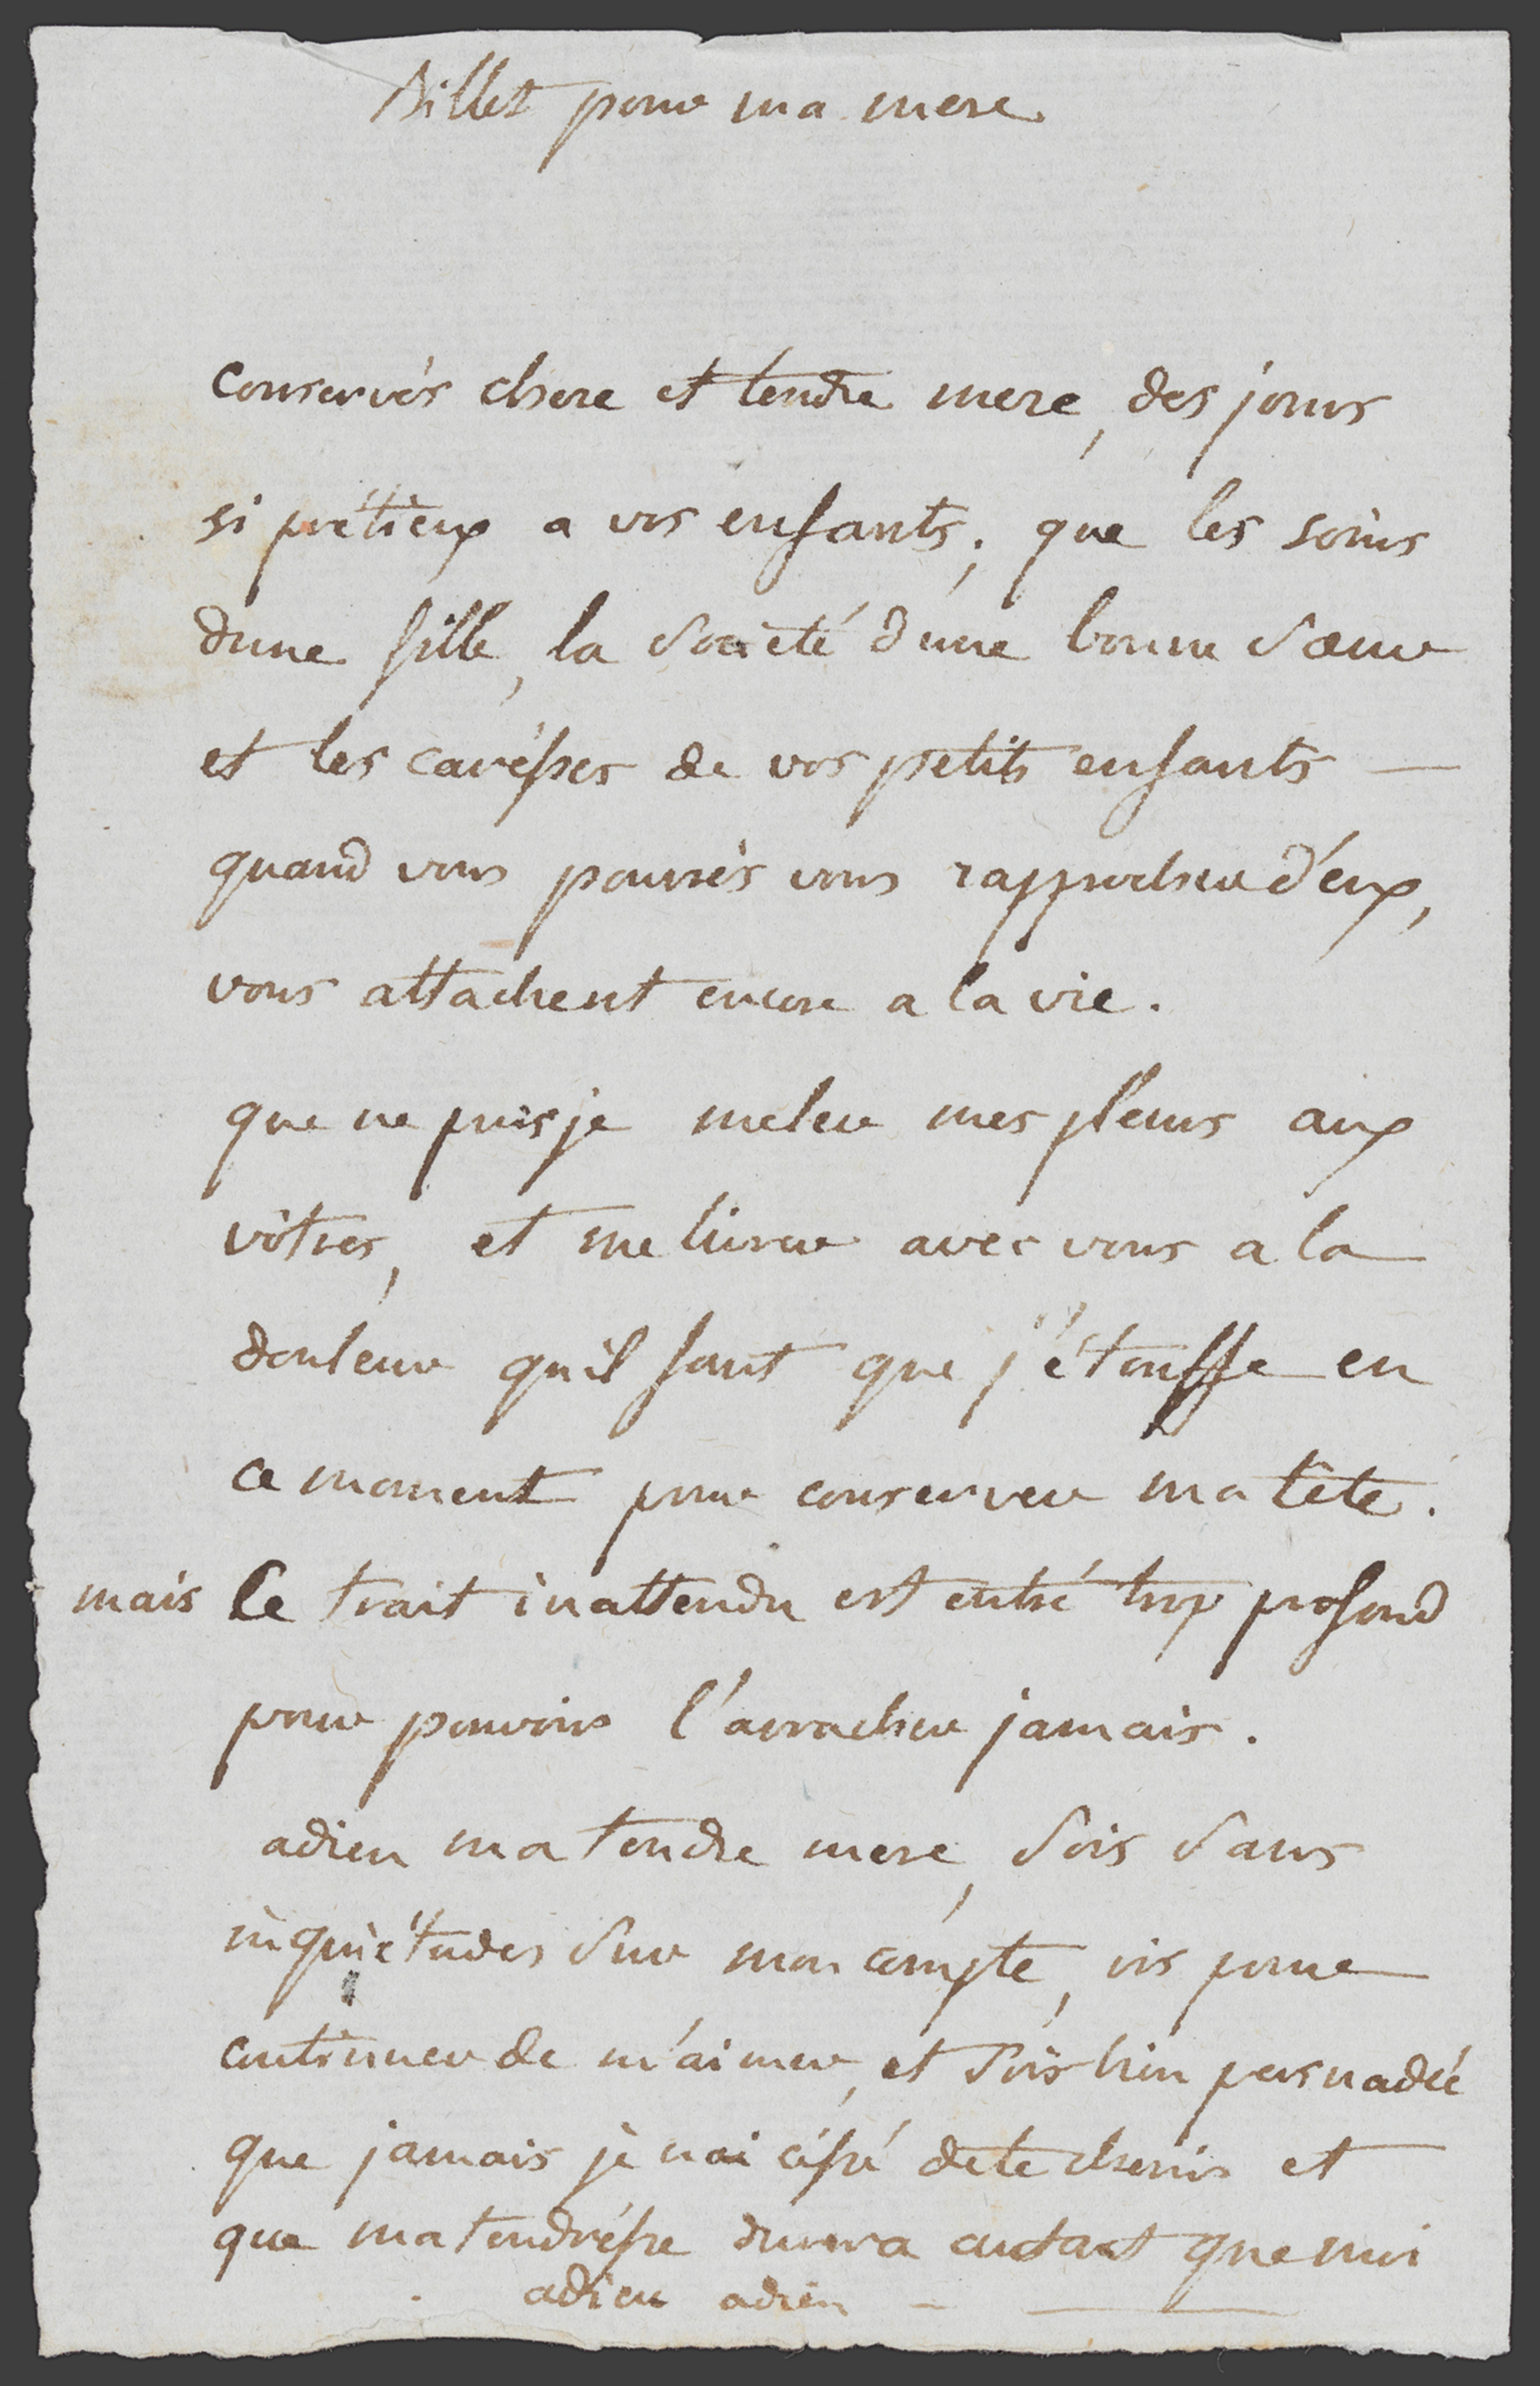 Billet pour ma mere
conservés chere et tendre mere, des jours
si prétieux a vos enfants; que les soins
dune fille, la Societé d'une bonne Sœur
et les caresses de vos petits enfants —
quand vous pourrés vous rapprocher d'eux,
vous attachent encore a la vie.
que ne puis je meler mes pleurs aux
vôtres, et me livrer avec vous a la
douleur qu'il faut que j'étouffe en
ce moment pour conserver ma tête.
mais le trait inattendu est entré trop profond
pour pouvoir l'arracher jamais.
adieu ma tendre mere, Sois Sans
inquiétudes Sur mon compte, vis pour
continuer de m'aimer, et Sois bien persuadée
que jamais je nai céssé de te cherir et
que ma tendrésse durera autant que moi
adieu adieu — —